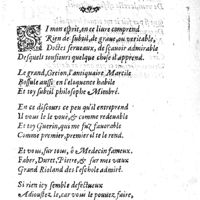 SI mon esprit, en ce liure comprend
Rien de subtil, de graue, ou veritable,
Doctes cerueaux, de sçauoir admirable
Desquels tousiours quelque chose il apprend.
Le grand, Greion, l'antiquaire Marcile
Bossule aussi en l'eloquence habile
Et toy subtil philosophe Mimbré.
En ce discours ce peu qu'il entreprend
Il vous le le vouë, & comme redeuable
Et toy Guerin, qui me fuz fauorable
Comme premier, premierement le rend.
Et vous, sur tous, ô Medecin fameux.
Faber, Duret, Pietre, & sur mes vœux
Grand Rioland des l'eschole admiré.
Si rien icy semble defectueux
Adioustez le, car vous le pouuez faire,